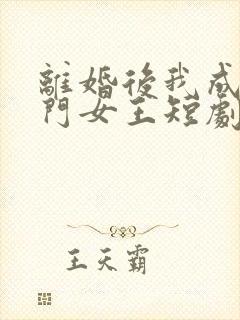 離婚後我成
門女王短劇
王天霸